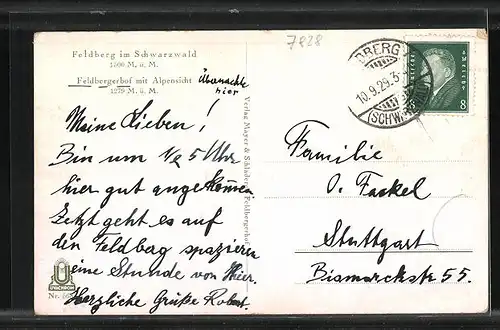 7828
Feldberg im Schwarzwald
1500 M. ü. M.
Feldbergerhof mit Alpensicht
1279 m. ü. M.
Übernachte
hier
Meine Lieben!
Bin um ½ 5 Uhr
hier gut angekommen
Jetzt geht es auf
den Feldberg spazieren
eine Stunde von hier.
Herzliche Grüße Robert.
Verlag Mayer & Schladerer, Feldbergerhof
Nr.
10.9.29.
(SCHW
8
Familie
O. Fackel
Stuttgart
Bismarckstr 55.